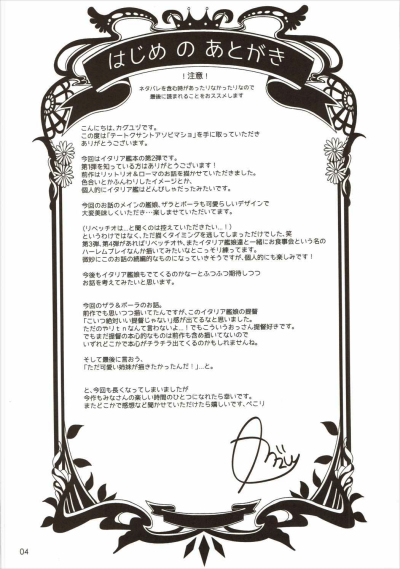 はじめ の あとがき
！注意！
ネタバレを含む時があったりなかったりなので
最後に読まれることをおススメします
こんにちは、カグユヅです。
この度は「テートクサントアソビマショ」を手に取っていただき
ありがとうございます！
今回はイタリア艦本の第2弾です。
第1弾を知っている方はありがとうございます！
前作はリットリオ＆ローマのお話を描かせていただきました。
色合いとかふんわりしたイメージとか、
個人的にイタリア艦はどんぴしゃだったみたいです。
今回のお話のメインの艦娘、ザラとポーラも可愛らしいデザインで
大変美味しくいただき…楽しませていただいてます。
（リベッチオは…と聞くのは控えていただきたい…！）
というわけではなく、ただ描くタイミングを逃してしまっただけでした。笑
第3弾、第4弾があればリベッチオや、またイタリア艦娘達と一緒にお食事会という名の
ハーレムプレイなんか描いてみたいなとこっそり練ってます。
微妙にこのお話の続編的なものになっていきそうですが、個人的にも楽しみです！
今後もイタリア艦もでてくるのかなーとふつふつ期待しつつ
お話を考えてみたいと思います。
今回のザラ＆ポーラのお話。
前作でも思いつつ描いてたんですが、このイタリア艦娘の提督
「こいつ絶対いい提督じゃない」感が出てるなと思いました。
ただのヤリtnなんて言わないよ…！でもこういうおっさん提督好きです。
でもまだ提督の本心的なものは前作も含め描いてないので
いずれどこかで本心がチラチラ出てくるのかもしれませんね。
そして最後に言おう、
「ただ可愛い姉妹が描きたかったんだ！」…と。
と、今回も長くなってしまいましたが
今作もみなさんの楽しい時間のひとつになれたら幸いです。
またどこかで感想など聞かせていただけたら嬉しいです、ぺこり
04